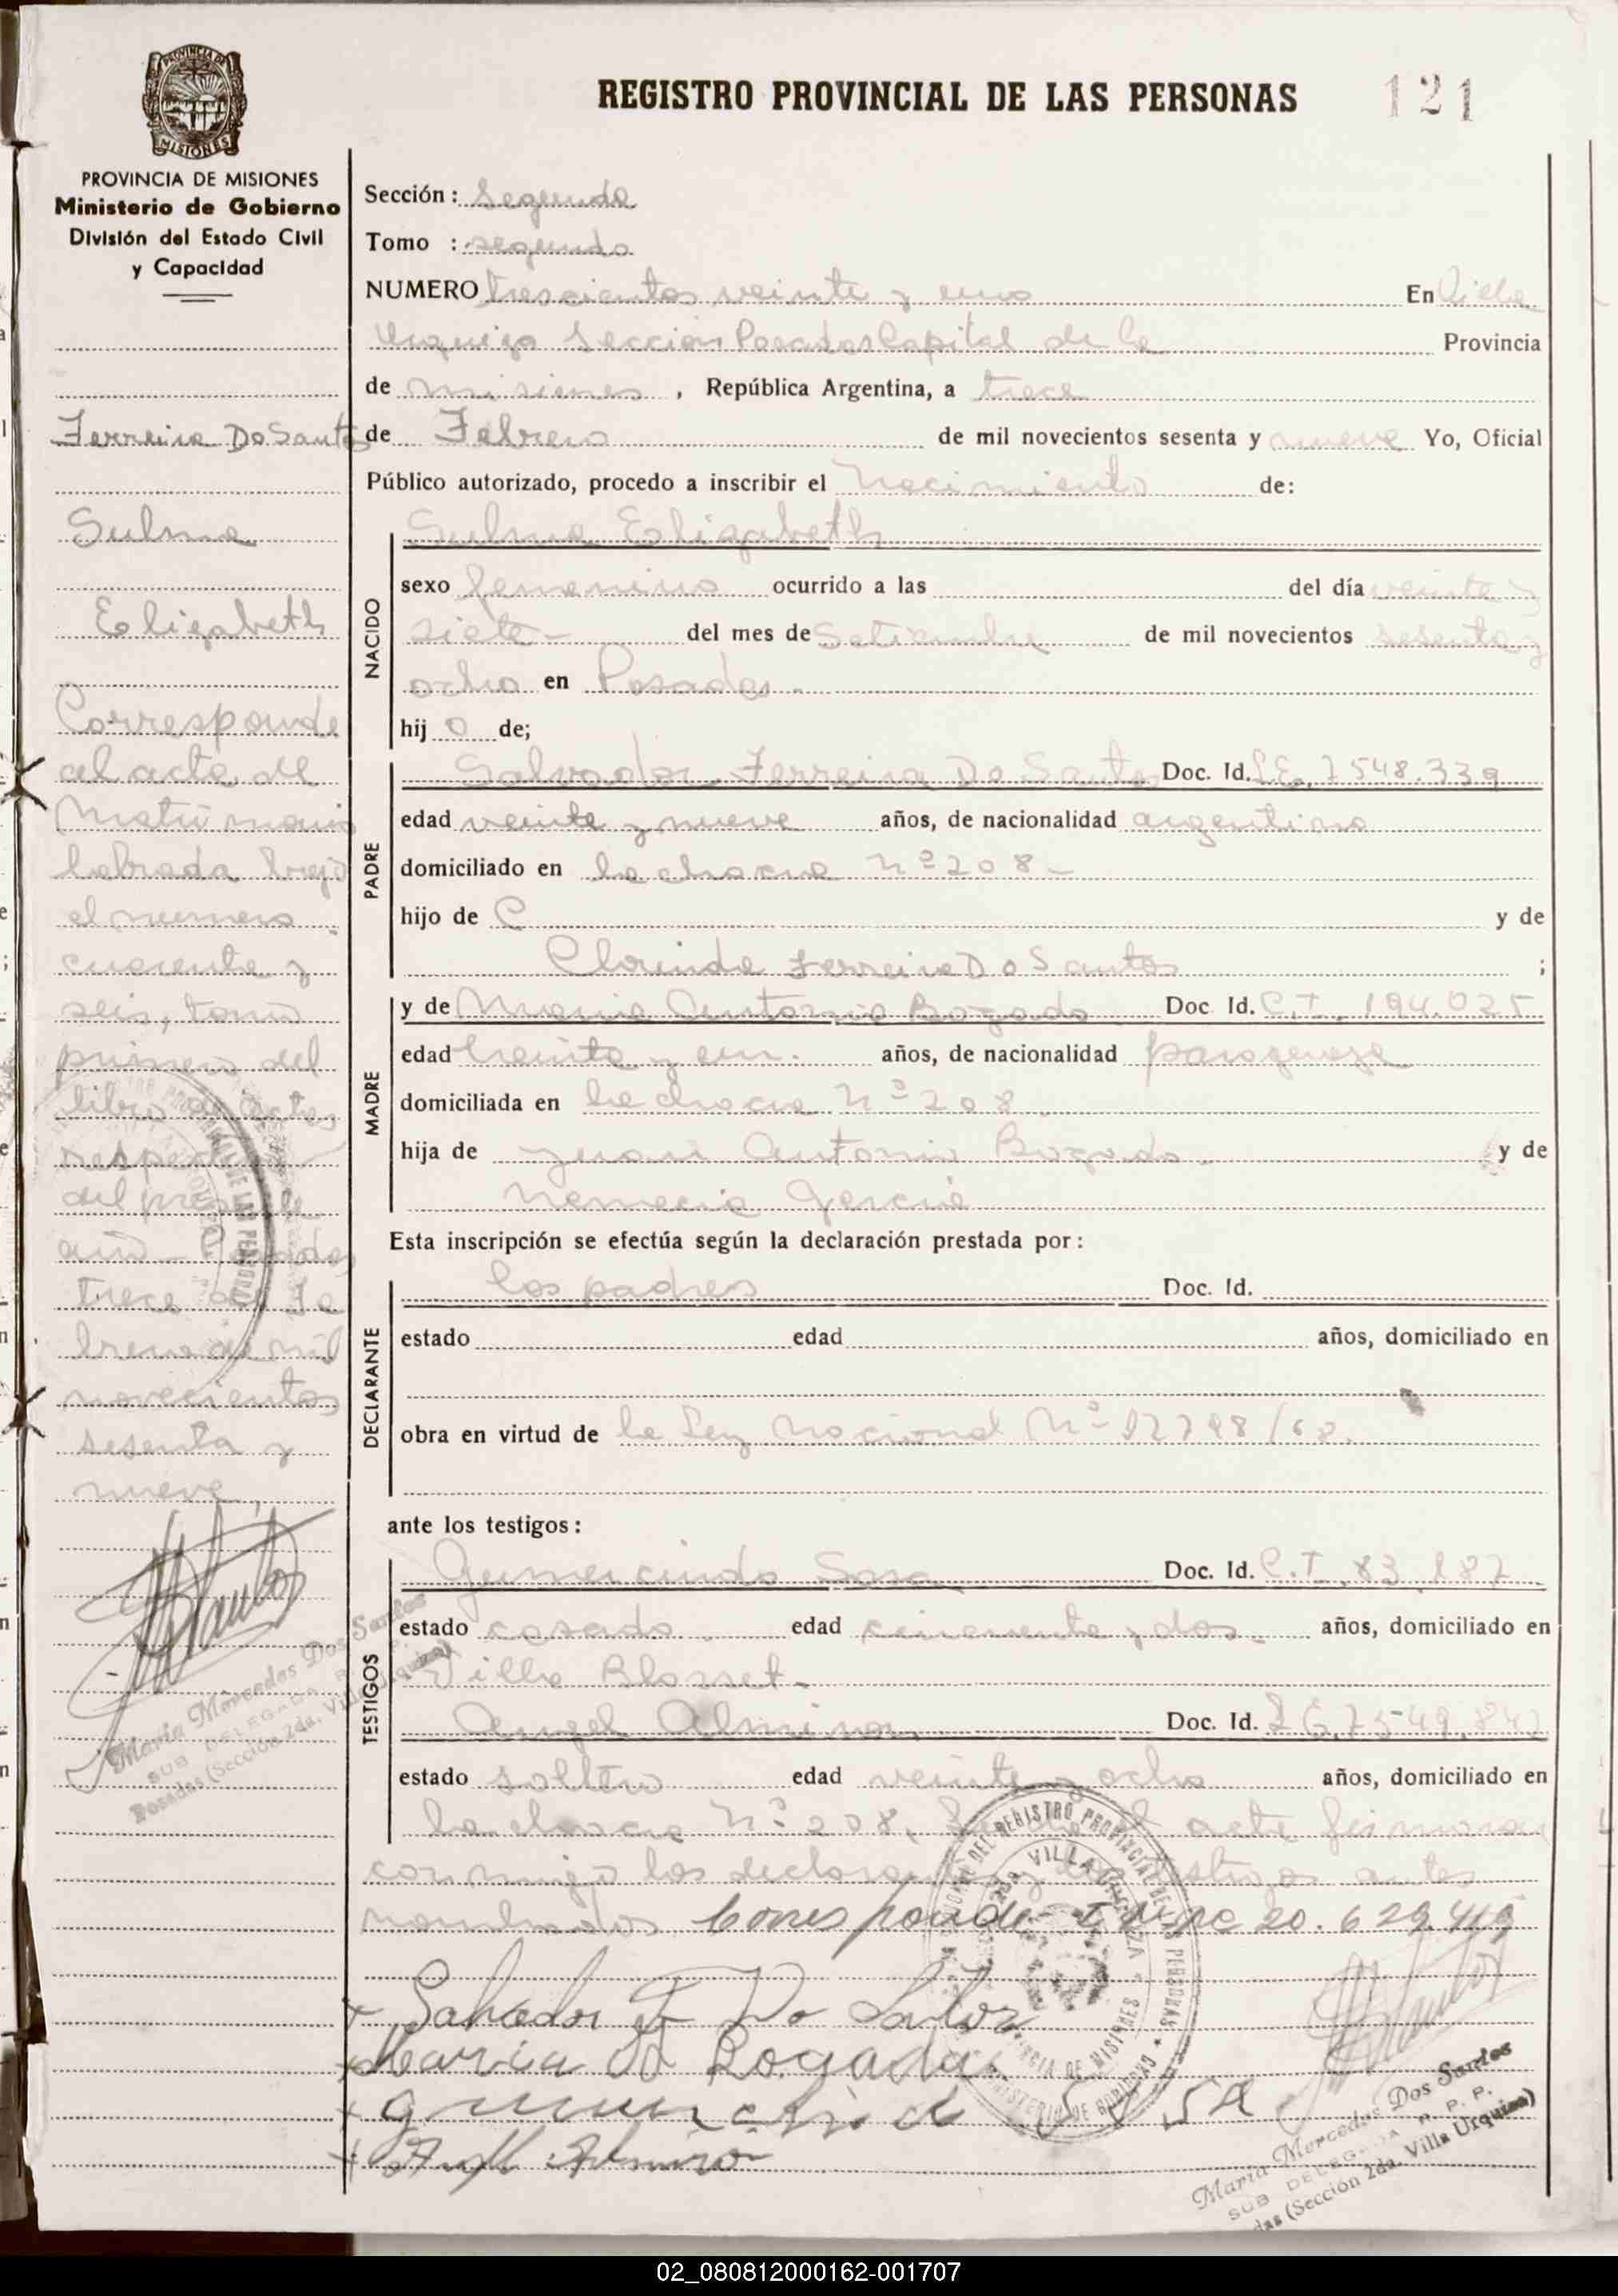 REGISTRO PROVINCIAL DE LAS PERSONAS 121
PROVINCIA DE MISIONES
Ministerio de Gobierno
División del Estado Civil
y Capacidad
Ferreira Do Santos
Sulma
Elizabeth
Corresponde
al acta de
Matrimonio
labrada bajo
el numero
cuarenta y
seis, tomo
primero del
libro de actas
del presente
año - Posadas
trece de Fe
brero de mil
novecientos
sesenta y
nueve
Maria Mercedes Dos Santos
SUB DELEGADA R. P. P.
Posadas (Sección 2da. Villa Urquiza)
Sección: Segunda
Tomo : segundo
NUMERO trescientos veinte y uno En Villa
Urquiza Sección Posadas Capital de la Provincia
de misiones, República Argentina, a trece
de Febrero de mil novecientos sesenta y nueve Yo, Oficial
Público autorizado, procedo a inscribir el Nacimiento de:
NACIDO
Sulma Elizabeth
sexo femenino ocurrido a las del día veinte y
siete - del mes de Setiembre de mil novecientos sesenta y
ocho en Posadas.
hij o de;
PADRE
Salvador Ferreira Do Santos Doc. Id. L.E. 7548.339
edad veinte y nueve años, de nacionalidad argentino
domiciliado en la chacra nº 208 -
hijo de y de
Clorinda Ferreira Do Santos ;
MADRE
y de Maria Antonia Bogado Doc Id. C.I. 194.025
edad treinta y un. años, de nacionalidad paraguaya
domiciliada en la chacra Nº 208
hija de Juan Antonio Bogado. y de
Nemecia Garcia
Esta inscripción se efectúa según la declaración prestada por:
DECLARANTE
los padres Doc. Id.
estado edad años, domiciliado en
obra en virtud de la Ley Nacional Nº 17798/68.
ante los testigos:
TESTIGOS
Gumercindo Sosa Doc. Id. C.I. 83.187
estado casado. edad cincuenta y dos. años, domiciliado en
Villa Blosset.
Angel Almiron Doc. Id. L.E. 7549.842
estado soltero edad veinte y ocho años, domiciliado en
la chacra Nº 208, acta firmaron
conmigo los testigos antes
nombrados. Corresponde 20.629.419
Salvador F Do Santos
Maria A Bogada
Sosa
Angel Almiron
REGISTRO PROVINCIAL DE LAS PERSONAS
VILLA URQUIZA
PROVINCIA DE MISIONES
MINISTERIO DE GOBIERNO
Maria Mercedes Dos Santos
SUB DELEGADA R. P. P.
das (Sección 2da. Villa Urquiza)
02_080812000162-001707